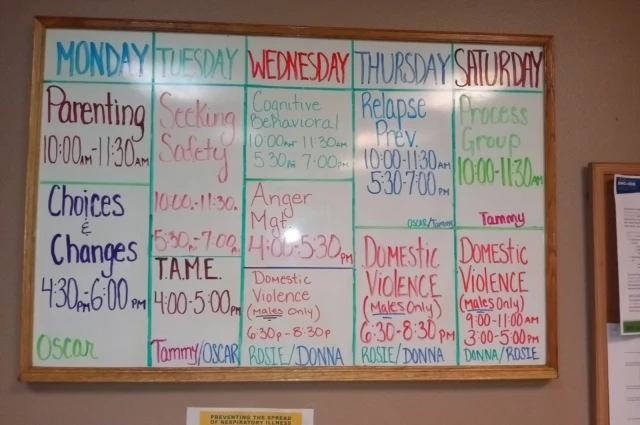 MONDAY
Parenting
10:00AM-11:30AM
Choices
&
Changes
4:30PM-6:00PM
Oscar
TUESDAY
Seeking
Safety
10:00-11:30
5:30-7:00
T.A.M.E.
4:00-5:00PM
Tammy/OSCAR
WEDNESDAY
Cognitive
Behavioral
10:00AM-11:30AM
5:30AM 7:00PM
Anger
Mgt.
4:00-5:30PM
Domestic
Violence
(Males Only)
6:30P-8:30P
ROSIE/DONNA
THURSDAY
Relapse
Prev.
10:00-11:30AM
5:30-7:00PM
OSCAR/Tammy
DOMESTIC
VIOLENCE
(Males Only)
6:30-8:30PM
ROSIE/DONNA
SATURDAY
Process
Group
10:00-11:30AM
Tammy
DOMESTIC
VIOLENCE
(Males Only)
9:00-11:00AM
3:00-5:00PM
DONNA/ROSIE
PREVENTING THE SPREAD
OF RESPIRATORY ILLNESS